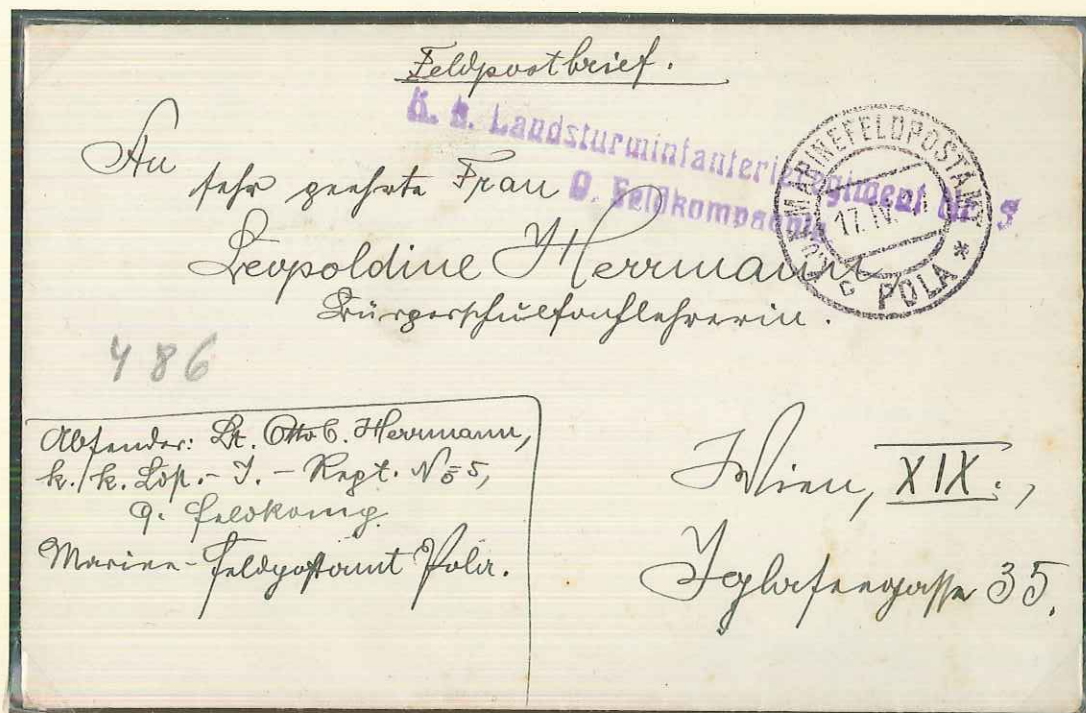 Feldpostbrief.
K. k. Landsturminfanterieregiment Nr. 5
9. Feldkompagnie
K.u.K. MARINEFELDPOSTAMT
17. IV.
c POLA *
An
sehr geehrte Frau
Leopoldine Herrmann
Bürgerschulfachlehrerin.
486
Absender: Lt. Otto C. Herrmann,
k. k. Ldst. - I. - Regt. No 5,
9. Feldkomp.
Marine-Feldpostamt Pola.
Wien, XIX.,
35.